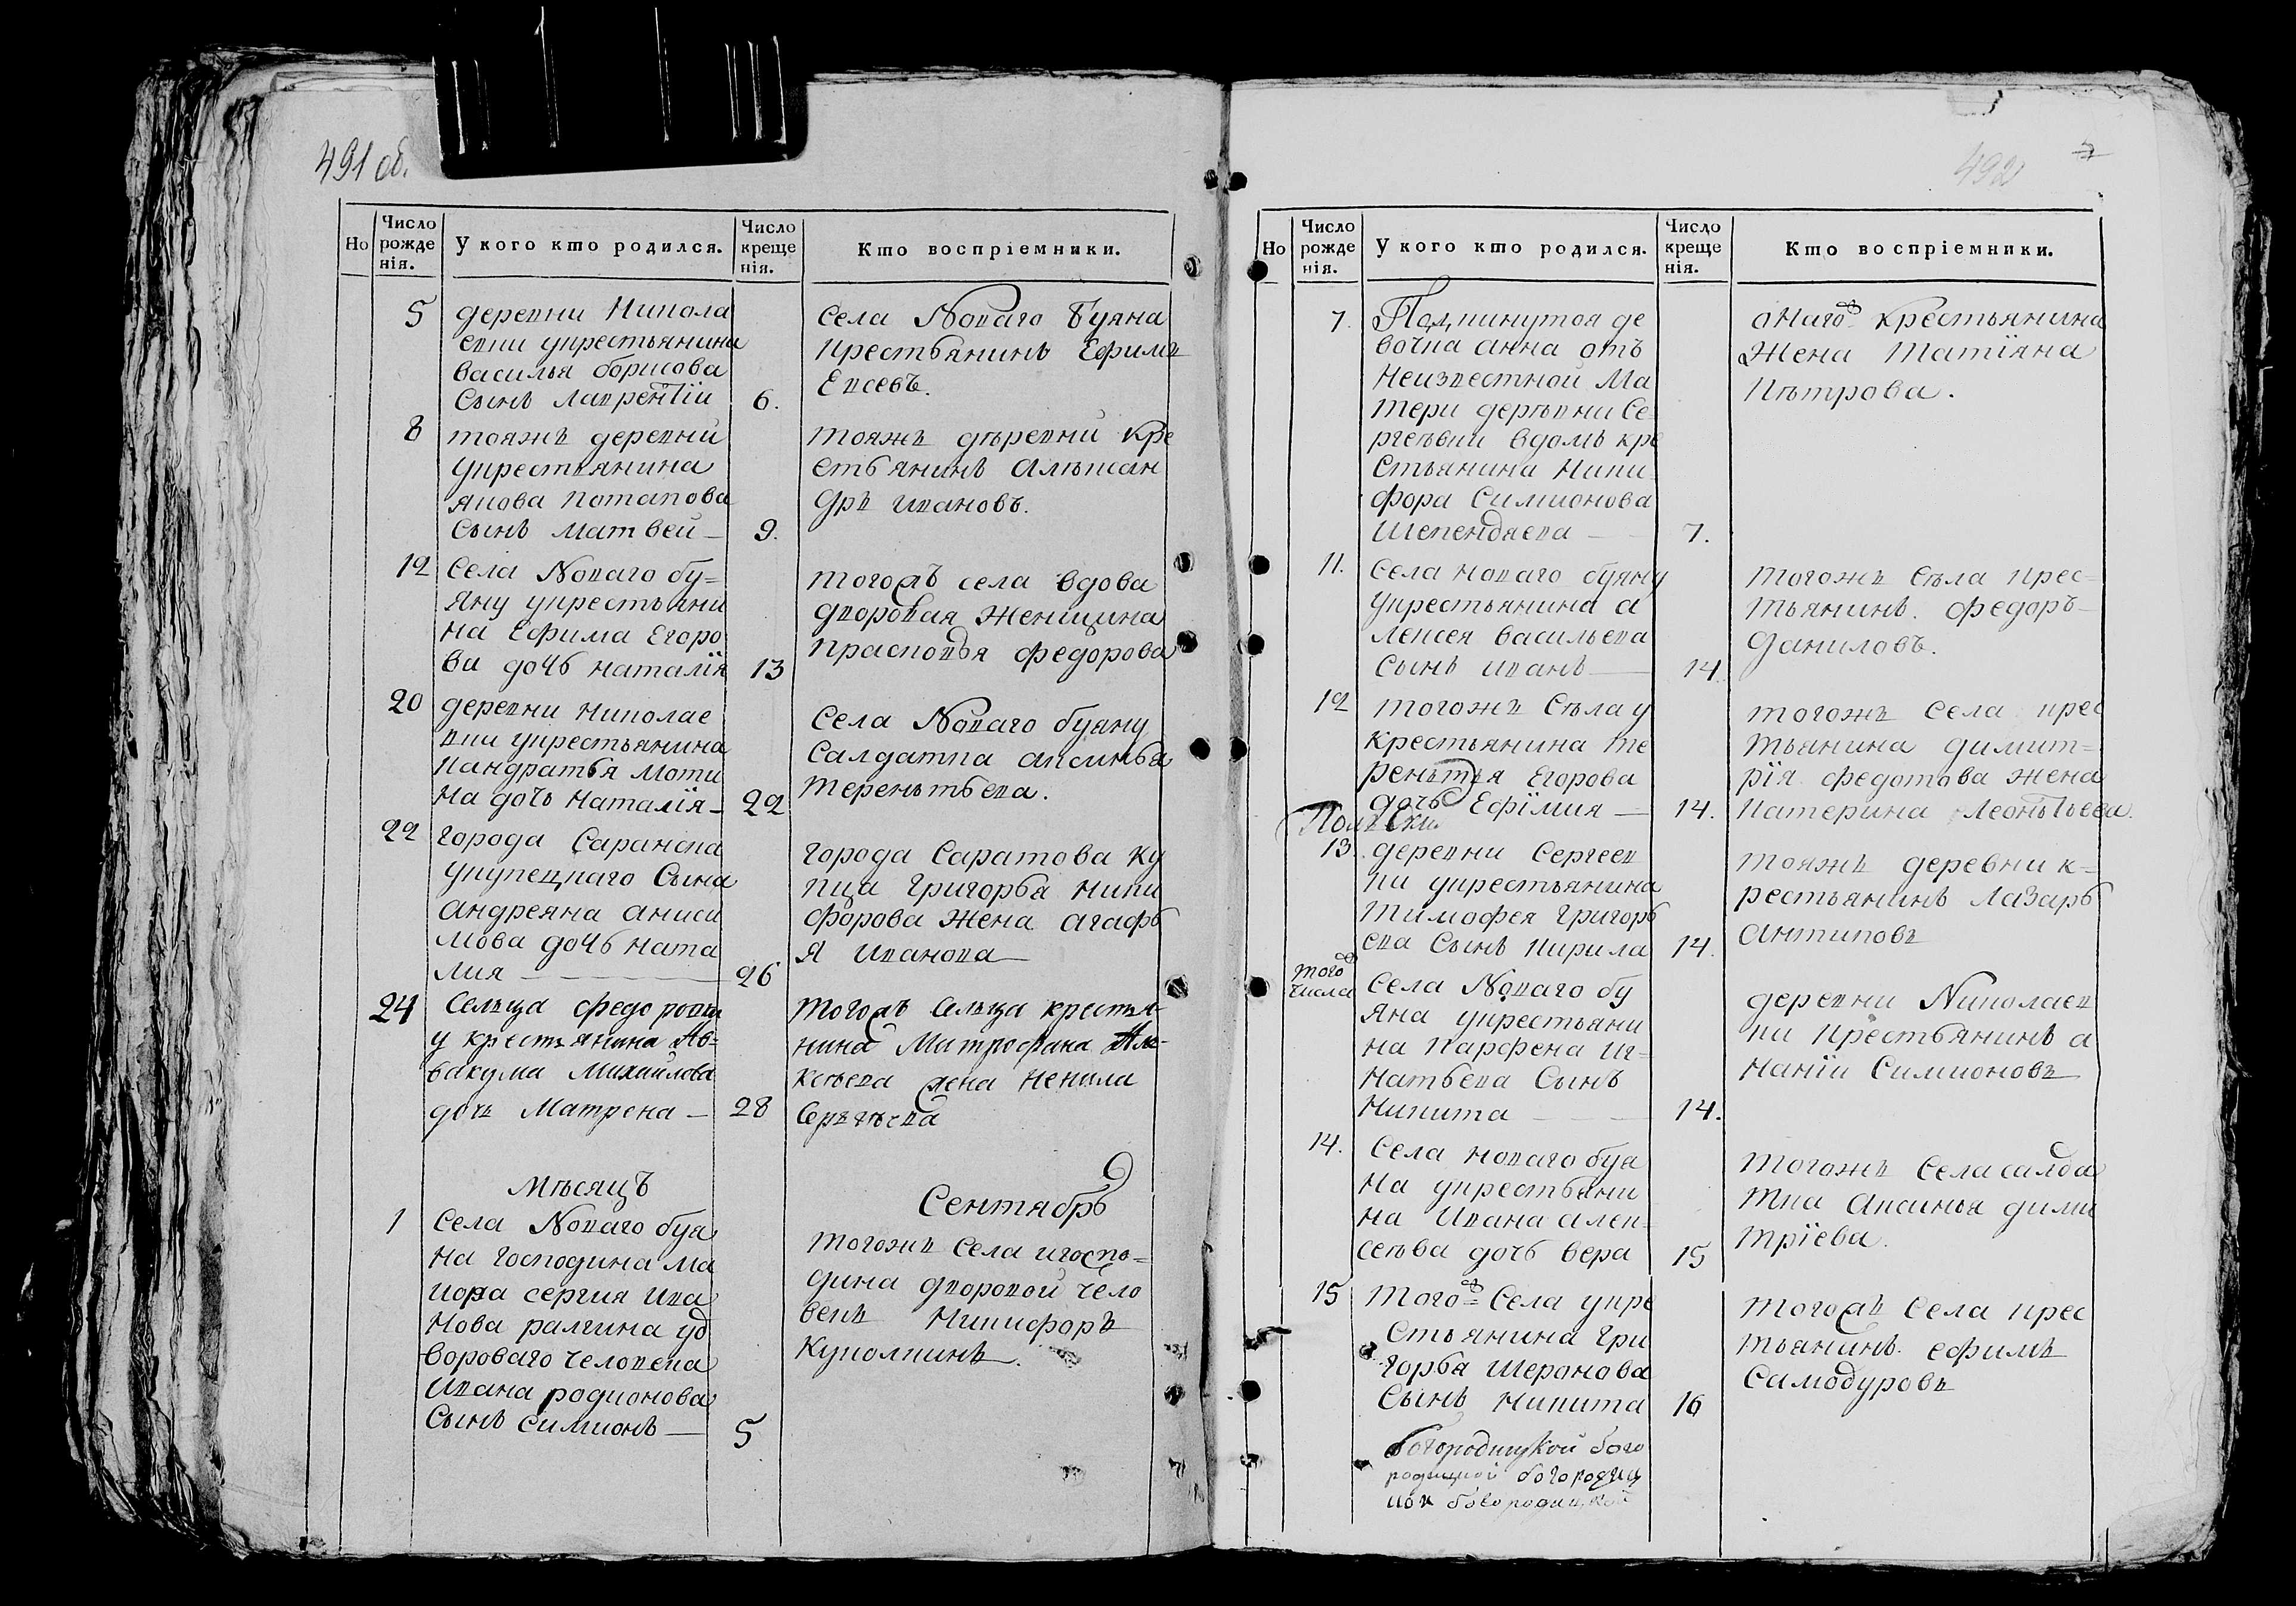 491 об.
Но
Число рожденія.
У кого кто родился.
Число крещенія.
Кто воспріемники.
5
деревни Никола
евки укрестьянина
василья борисова
Сынъ Лаврентїи
6.
Села Новаго буяна
крестьянинъ Ефимъ
Евсевъ.
8
тояжъ деревни
укрестьянина
якова потапова
Сынъ матвей
9.
тояжъ дѣревни кре
стьянинъ алѣксан
дръ ивановъ.
12
Села Новаго бу=
яну укрестьяни
на Ефима Егоро
ва дочь наталїя
13
тогожъ села вдова
дворовая женщина
прасковья федорова
20
деревни николае
вки укрестьянина
кандратья моти
на дочь наталїя
22
Села Новаго буяну
Салдатка аксинья
терентьева.
22
города Саранска
укупецкаго Сына
андреяна аниси
мова дочь ната
лия
26
города Саратова ку
пца григорья ники
форова жена агафь
я Иванова
24
Сельца федоровки
у крестьянина Ав=
вакума Михайлова
дочь Матрена
28
тогожъ Сельца крестья-
нина Митрофана Але-
ксѣева жена Ненила
Сергѣева
Мѣсяцъ
Сентябрь
1
Села Новаго буя
на господина ма
иора сергия ива
нова ралгина уд
вороваго человека
Ивана родионова
Сынъ Симионъ
5
тогожъ Села игоспо=
дина дворовой чело
векъ Никифоръ
Куколкинъ.
492
Но
Число рожденія.
У кого кто родился.
Число крещенія.
Кто воспріемники.
7.
Подкинутоя де
вочка анна отъ
Неизвестной Ма
тери дерѣвни Се
ргеѣвки вдомъ кре
стьянина Ники
фора Симионова
Шепендяева
7.
онагожъ крестьянина
Жена Татїяна
Пѣтрова.
11.
Села новаго буяну
укрестьянина а
лексея васильева
сынъ иванъ
14
тогожъ Сѣла крес=
тьянинъ федоръ
Даниловъ.
12
тогожъ Сѣла у
крестьянина те
рентья Егорова
дочь Ефїмия
14.
тогожъ Села крес
тьянина димит=
рїя федотова жена
Катерина Леонтьева.
13.
деревни Сергеев
ки укрестьянина
тимофея григорь
ева Сынъ Кирила
14.
тояжъ деревни к=
рестьянинъ лазарь
Антиповъ
того
числа
Села Новаго бу
яна укрестьяни
на Парфена иг=
натьева Сынъ
Никита
14.
деревни Николаев
ки крестьянинъ а
нанїи Симионовъ
14.
Села новаго буя
на укрестьяни
на Ивана алек=
сеѣва дочь вера
15
тогожъ Села салда
тка Аксинья дими
трїева.
15
тогожъ Села укре
стьянина гри
горья Шеронова
Сынъ Никита
16
тогожъ Села крес
тьянинъ ефимъ
Самодуровъ
богородицкой бого
родицкой богородиц
кои богородицкой